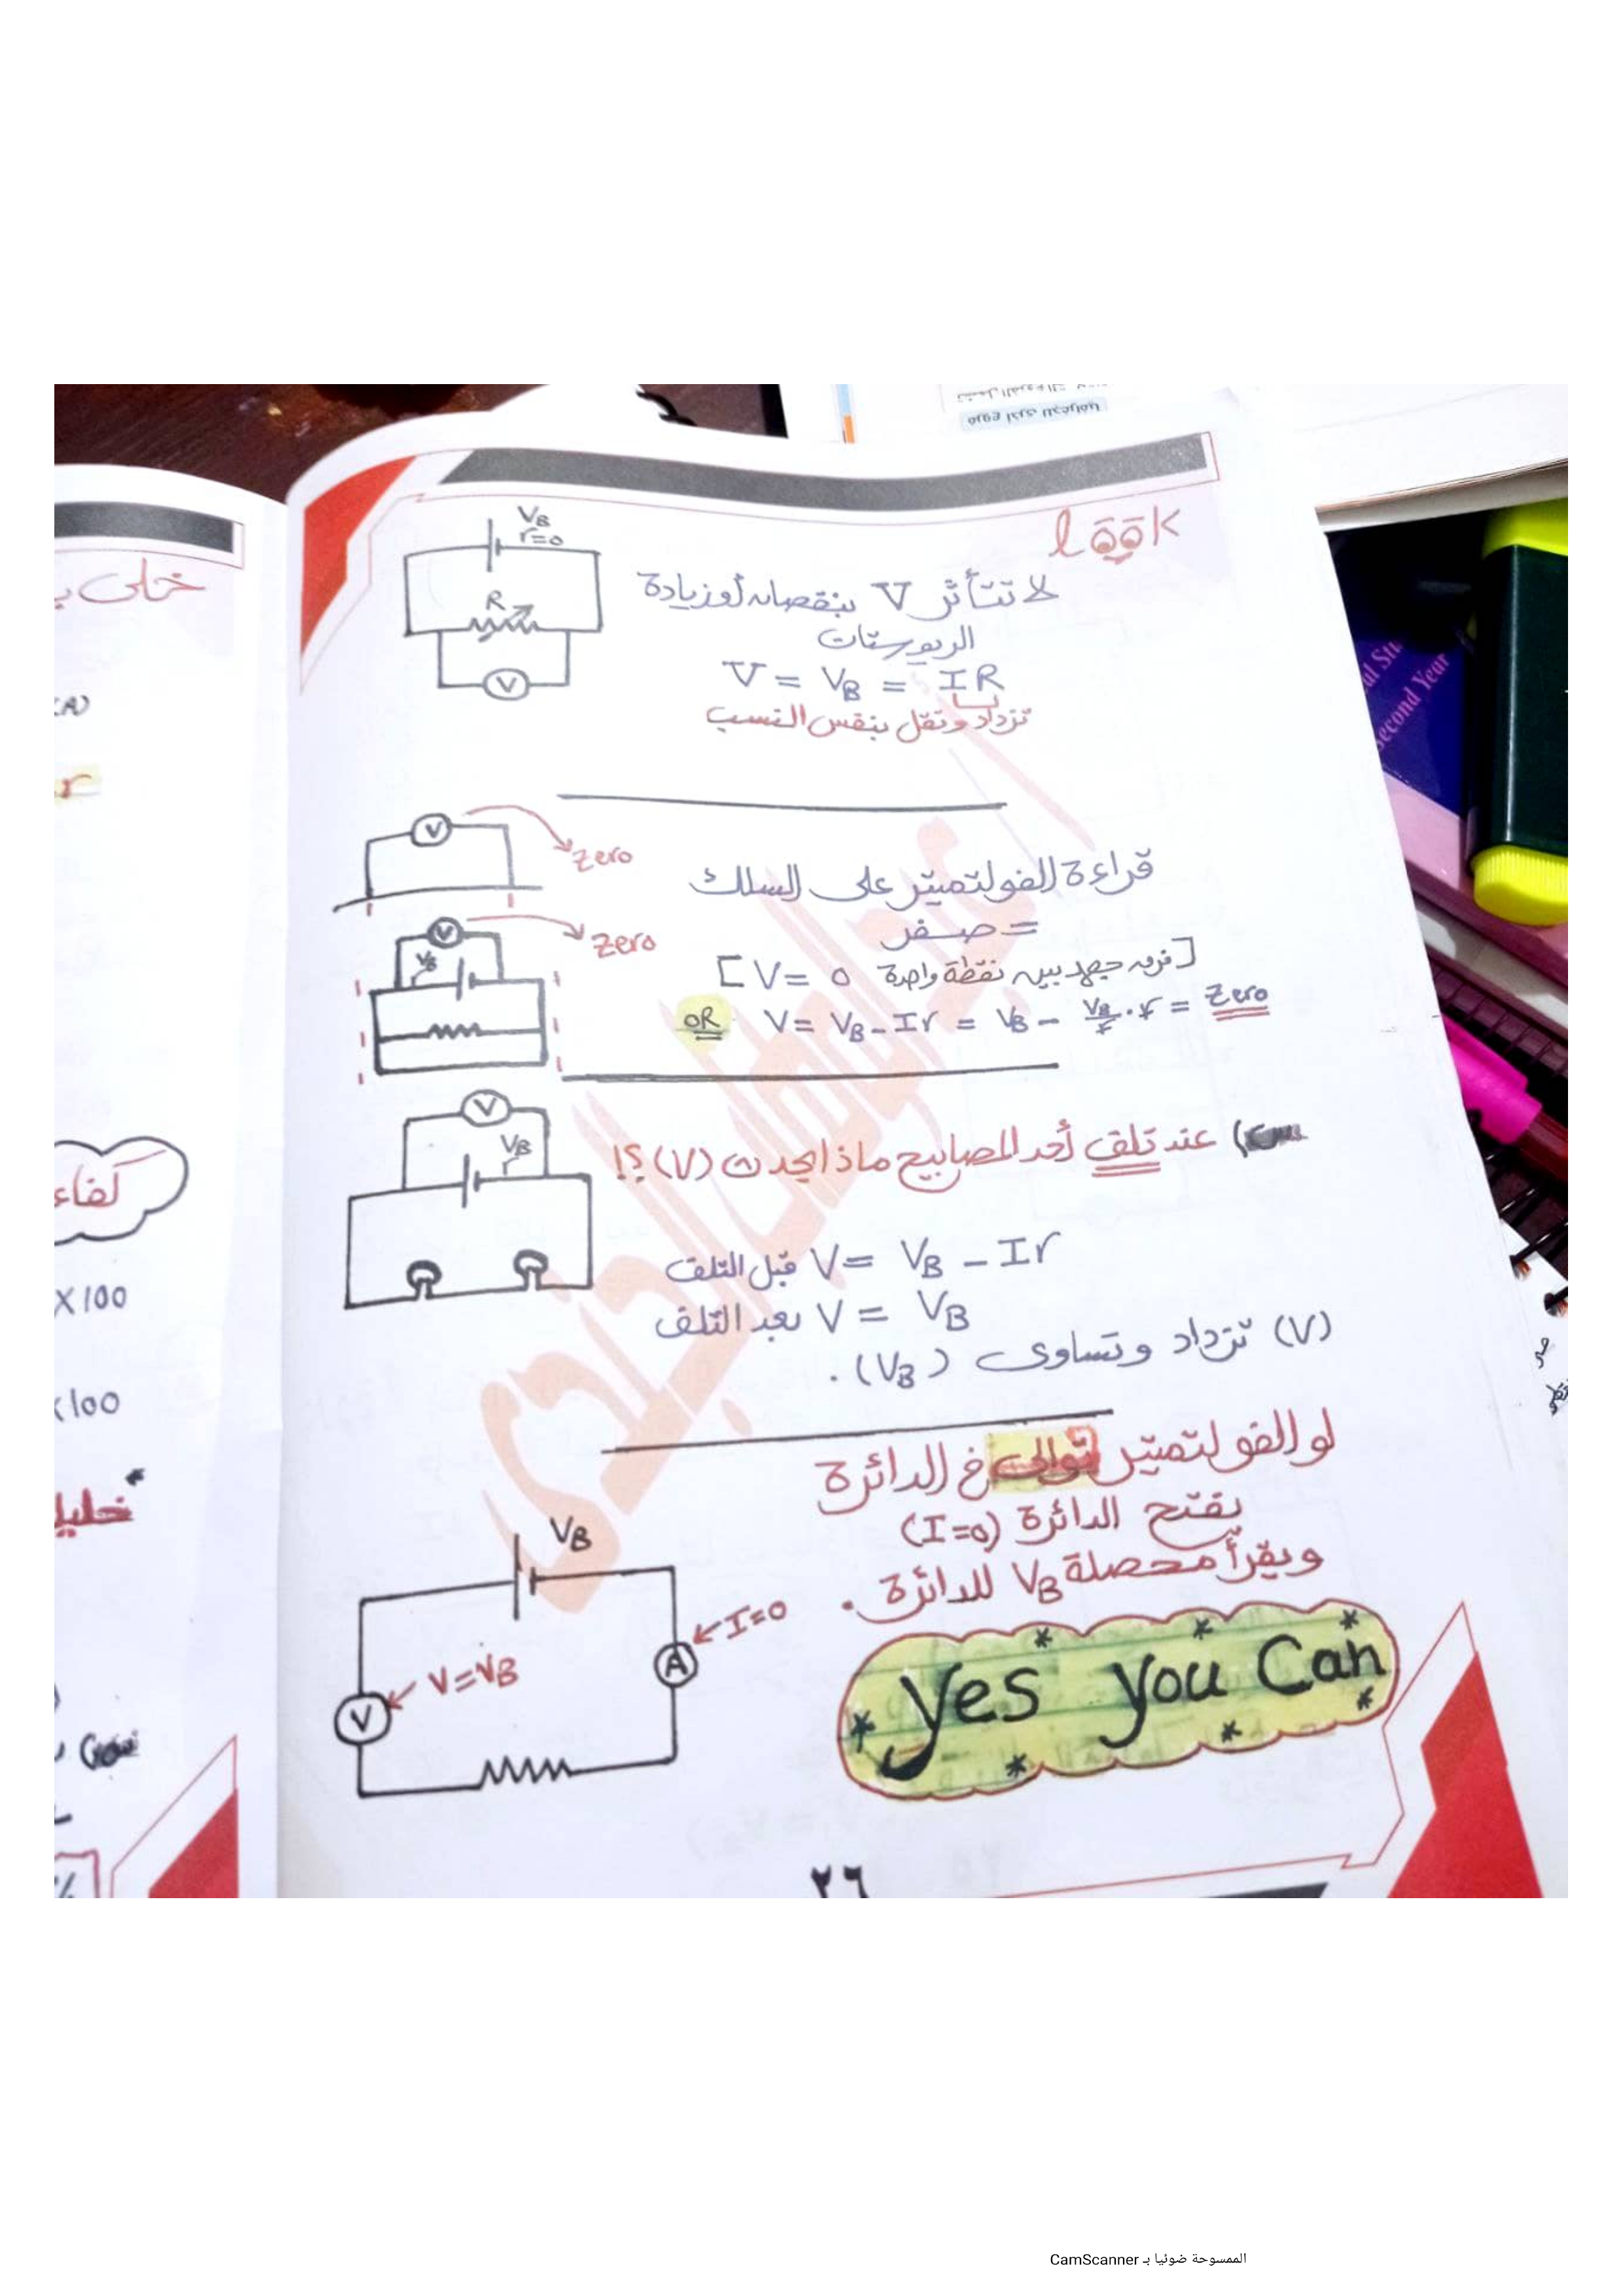 look
V_B
r=0
R
V
لا تتأثر V بنقصان أو زيادة
الريوستات
V = V_B = IR
تزداد وتقل بنفس النسب
V
Zero
قراءة الفولتميتر على السلك
= صفر
V
V_B
Zero
[فرق جهد بين نقطة واحدة V = 0]
OR V = V_B - Ir = V_B - V_B/r . r = Zero
V
V_B
عند تلف أحد المصابيح ماذا يحدث (V) ؟!
قبل التلف V = V_B - Ir
بعد التلف V = V_B
(V) تزداد وتساوى (V_B) .
لو الفولتميتر توالى في الدائرة
يفتح الدائرة (I=0)
ويقرأ محصلة V_B للدائرة .
V_B
I=0
A
V=V_B
V
yes you Can
٢٦
خلى
(A)
r
كفاء
X100
X100
second Year
الممسوحة ضوئيا بـ CamScanner